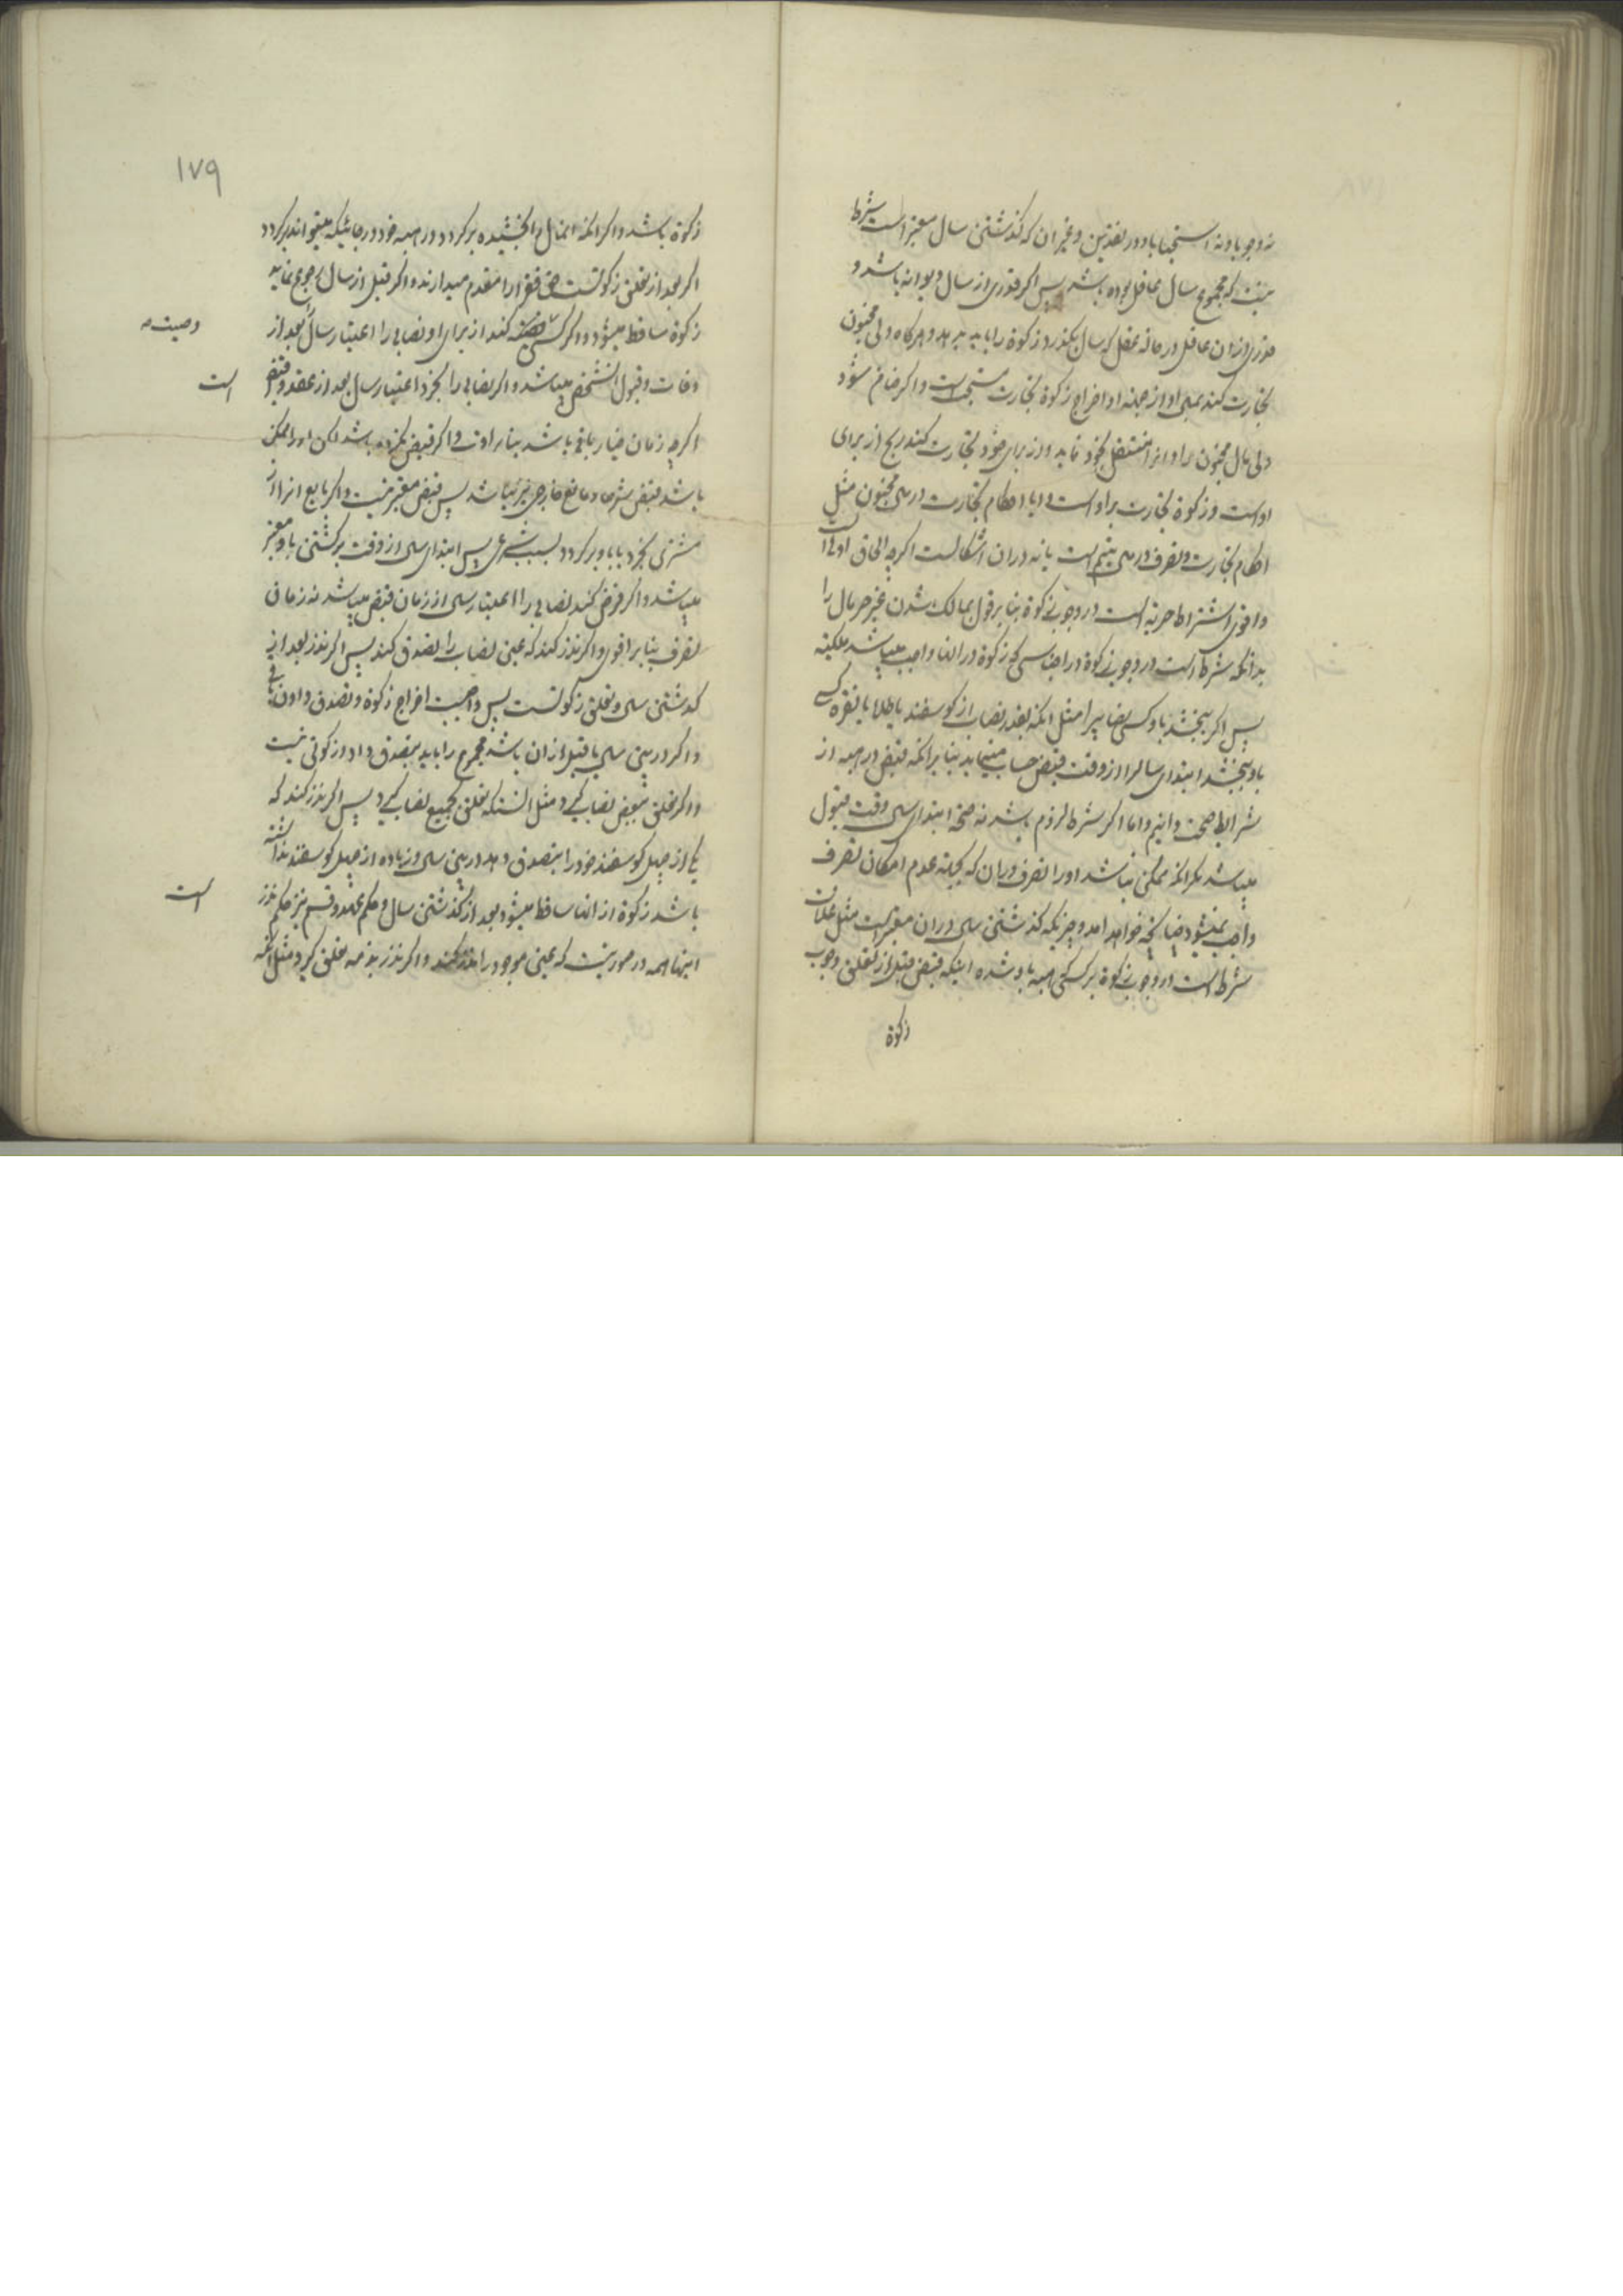 نه وجوبا و نه استحبابا و در نقدین و غیر ان که گذشتن سال معتبر است شرط
نیست که مجموع سال عاقل بوده باشد پس اگر قدری از سال دیوانه باشد و
قدری از ان عاقل در حالة عقل که سال بگذرد زکوة را باید بدهد و هرگاه ولی مجنون
تجارت کند بمال او از جهة او اخراج زکوة تجارت مستحب است و اگر ضامن شود
ولی مال مجنون را و انرا منتقل بخود نماید و از برای خود تجارت کند ربح از برای
اوست و زکوة تجارت بر اوست و ایا احکام تجارت در مال مجنون مثل
احکام تجارت و تصرف در مال یتیم است یا نه در ان اشکالست اگرچه الحاق اولی است
و اقوی اشتراط حریة است در وجوب زکوة بنا بر قول بمالک شدن غیر حر مال را
بدانکه شرط است در وجوب زکوة در اجناسی که زکوة در انها واجب میباشد ملکیة
پس اگر ببخشد باو کسی نصابیرا مثل انکه بقدر نصاب از گوسفند یا طلا یا نقره کسی
باو ببخشد ابتدای سالرا از وقت قبض حساب مینماید بنا بر انکه قبض در هبه از
شرایط صحت دانیم و اما اگر شرط لزوم باشد نه صحة ابتدای سال وقت قبول
میباشد مگر انکه ممکن نباشد او را تصرف در ان که بجهة عدم امکان تصرف
واجب نمیشود چنانچه خواهد امد و چیزیکه گذشتن سال در ان معتبر است مثل غلات
شرط است در وجوب زکوة بر کسی که هبه باو شده اینکه قبض قبل از تعلق وجوب
زکوة
۱۷۹
زکوة باشد و اگر انکه انمال را بخشیده برگردد در هبه خود در جائیکه میتواند برگردد
اگر بعد از تعلق زکوتست حق فقرا را مقدم میدارند و اگر قبل از سال رجوع نماید
زکوة ساقط میشود و اگر کسی کند از برای او نصابی را اعتبار سال بعد از
وصیت
وفات و قبول انشخص میباشد و اگر نصابی را بخرد اعتبار سال بعد از عقد و قبض
است
اگرچه زمان خیار باقی باشد بنا بر اقوی و اگر قبض نکرده باشد لکن او را ممکن
باشد قبض شرعا و مانع خارجی نیز نباشد پس قبض معتبر نیست و اگر بایع انرا از
مشتری بخرد یا باو برگردد بسبب شرعی پس ابتدای سال از وقت برگشتن باو معتبر
میباشد و اگر قرض کند نصابی را اعتبار سال از زمان قبض میباشد نه زمان
تصرف بنا بر اقوی و اگر نذر کند که عین نصاب را تصدق کند پس اگر نذر بعد از
گذشتن سال و تعلق زکوتست پس واجبست اخراج زکوة و تصدق دادن باقی
و اگر در بین سال یا قبل از ان باشد مجموع را باید بتصدق داد و زکوتی نیست
و اگر تعلق ببعض نصاب گیرد مثل انستکه تعلق بجمیع نصاب گیرد پس اگر نذر کند که
یکی از چهل گوسفند خود را بتصدق دهد در بین سال و زیاده از چهل گوسفند نداشته
باشد زکوة از انها ساقط میشود بعد از گذشتن سال و حکم عهد و قسم نیز حکم نذر
است
اینها همه در صورتیست که عین موجود را نذر کند و اگر نذر بذمه تعلق گیرد مثل انکه